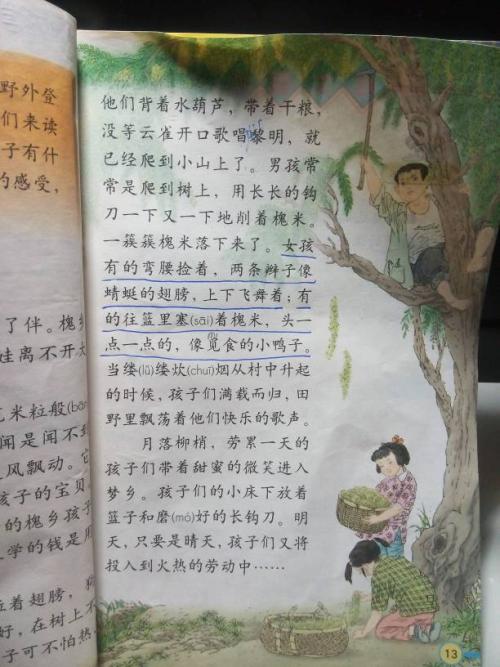 野外登
们来读
子有什
的感受,
了伴。槐乡
娃离不开大
米粒般(bān)
闻是闻不到
风飘动。它
孩子的宝贝
的槐乡孩子
学的钱是用
着翅膀,
好,在树上不
子可不怕热
他们背着水葫芦,带着干粮,
没等云雀开口歌唱黎明,就
已经爬到小山上了。男孩常
常是爬到树上,用长长的钩
刀一下又一下地削着槐米。
一簇簇槐米落下来了。女孩
有的弯腰捡着,两条辫子像
蜻蜓的翅膀,上下飞舞着;有
的往篮里塞(sāi)着槐米,头一
点一点的,像觅食的小鸭子。
当缕(lǚ)缕炊(chuī)烟从村中升起
的时候,孩子们满载而归,田
野里飘荡着他们快乐的歌声。
月落柳梢,劳累一天的
孩子们带着甜蜜的微笑进入
梦乡。孩子们的小床下放着
篮子和磨(mó)好的长钩刀。明
天,只要是晴天,孩子们又将
投入到火热的劳动中……
13